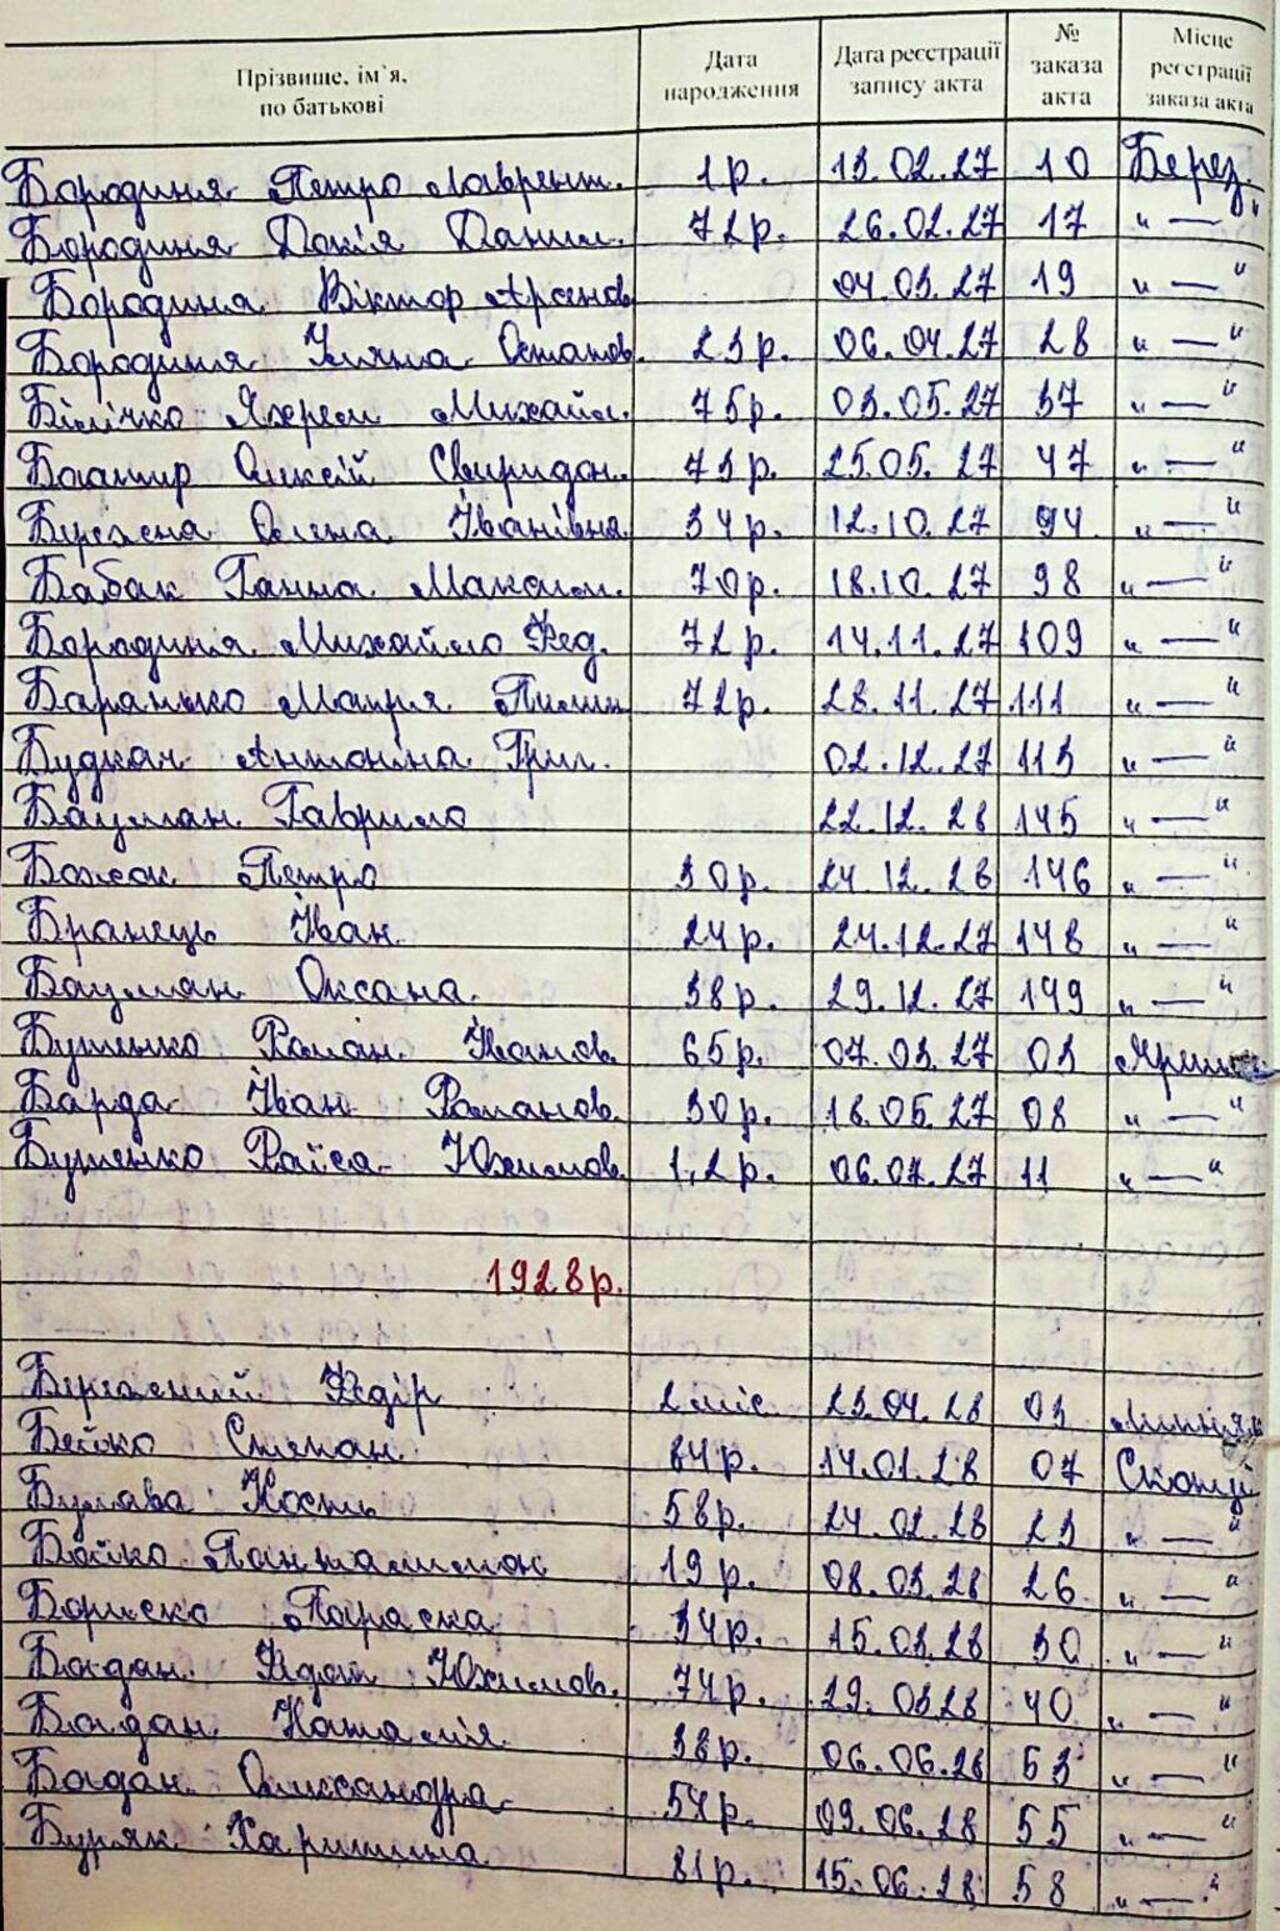 Прізвище, ім`я, по батькові | Дата народження | Дата реєстрації запису акта | № заказа акта | Місце реєстрації заказа акта
Бородиня Петро Лаврент. 1р. 13.02.27 10 Берез.
Бородиня Докія Данил. 72р. 26.02.27 17 "—"
Бородиня Віктор Арсенов. 04.03.27 19 "—"
Бородиня Уляна Остапов. 23р. 06.04.27 28 "—"
Білічко Яхрем Михайл. 75р. 03.05.27 37 "—"
Олексій Свиридон. 73р. 25.05.27 47 "—"
Олена Іванівна 34р. 12.10.27 94 "—"
Бабак Ганна Максим. 70р. 18.10.27 98 "—"
Бородиня Михайло Фед. 72р. 14.11.27 109 "—"
Марія Пилип. 72р. 28.11.27 111 "—"
Будкач Антоніна Григ. 02.12.27 113 "—"
Бауман Гаврило 22.12.28 145 "—"
Петро 30р. 24.12.28 146 "—"
Бранець Іван 24р. 24.12.27 148 "—"
Бауман Оксана 38р. 29.12.27 149 "—"
Бутенко Роман Іванов. 65р. 07.03.27 03
Барда Іван Романов. 30р. 18.05.27 08 "—"
Бутенко Раїса Юхимов. 1,2р. 06.07.27 11 "—"
1928р.
Бережний Федір 2 міс. 23.04.28 03
Бойко Степан 84р. 14.01.28 07
Булава Кость 58р. 24.02.28 23 "—"
Бойко Панталимон 19р. 08.03.28 26 "—"
Параска 34р. 15.03.28 30 "—"
Богдан Федот Юхимов. 74р. 29.03.28 40 "—"
Богдан Наталія 38р. 06.06.28 53 "—"
Богдан Олександра 54р. 09.06.28 55 "—"
Буряк Харитина 81р. 15.06.28 58 "—"